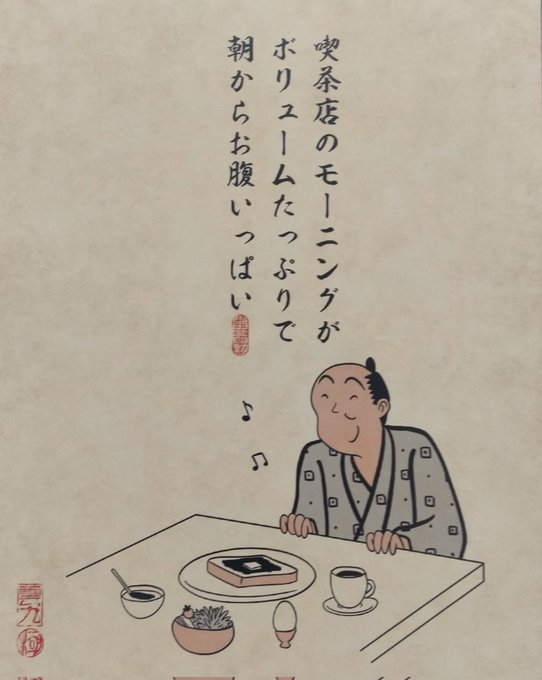 喫茶店のモーニングが
ボリュームたっぷりで
朝からお腹いっぱい